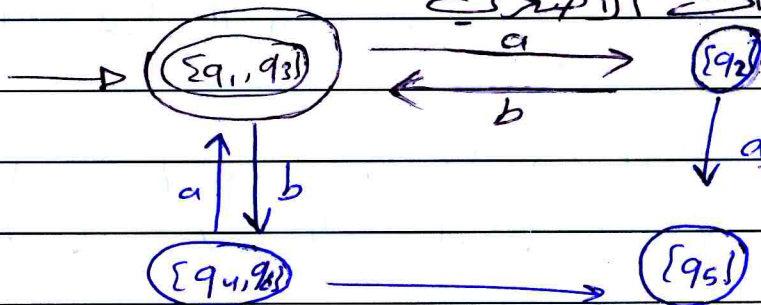 {q1, q3} a {q2}
b
a b a
{q4, q6} {q5}